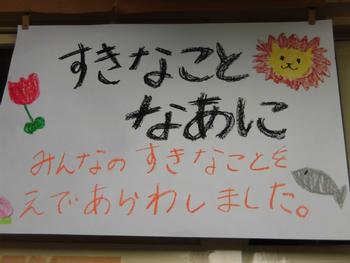 すきなこと
なあに
みんなの すきなことを
えであらわしました。